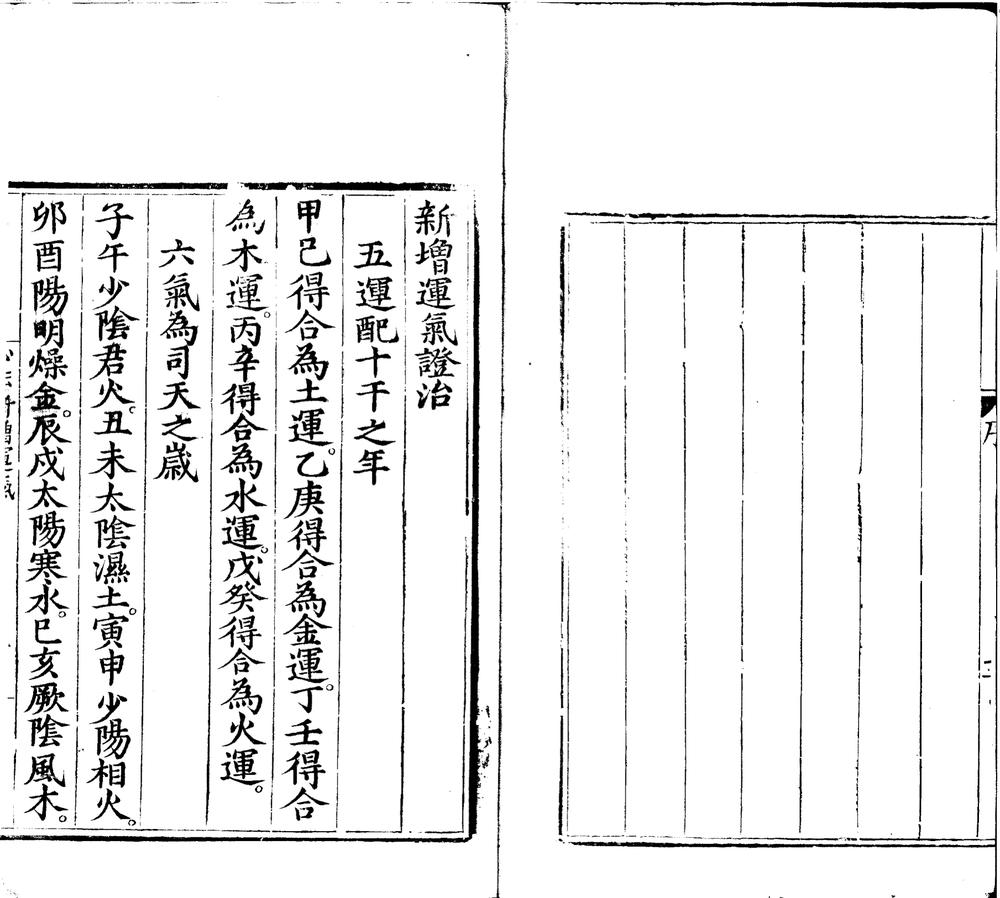 新增運氣證治
五運配十干之年
甲己得合為土運。乙庚得合為金運。丁壬得合
為木運。丙辛得合為水運。戊癸得合為火運。
六氣為司天之歲
子午少陰君火。丑未太陰濕土。寅申少陽相火。
卯酉陽明燥金。辰戌太陽寒水。巳亥厥陰風木。